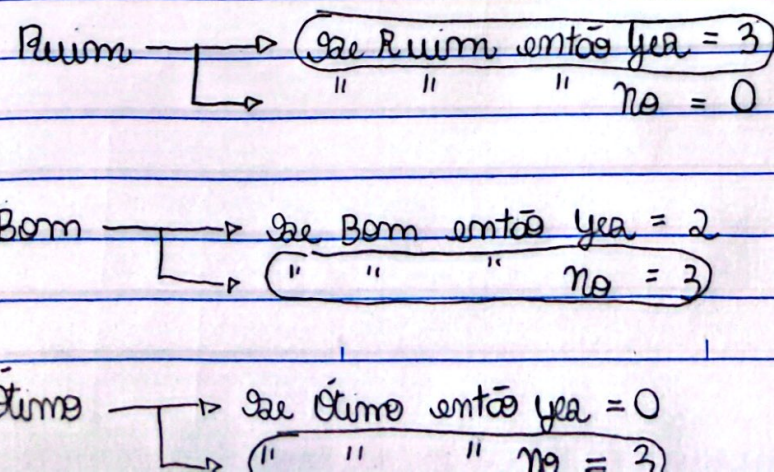 Ruim → Se Ruim então yes = 3
" " " no = 0
Bom → Se Bom então yes = 2
" " " no = 3
Ótimo → Se Ótimo então yes = 0
" " " no =